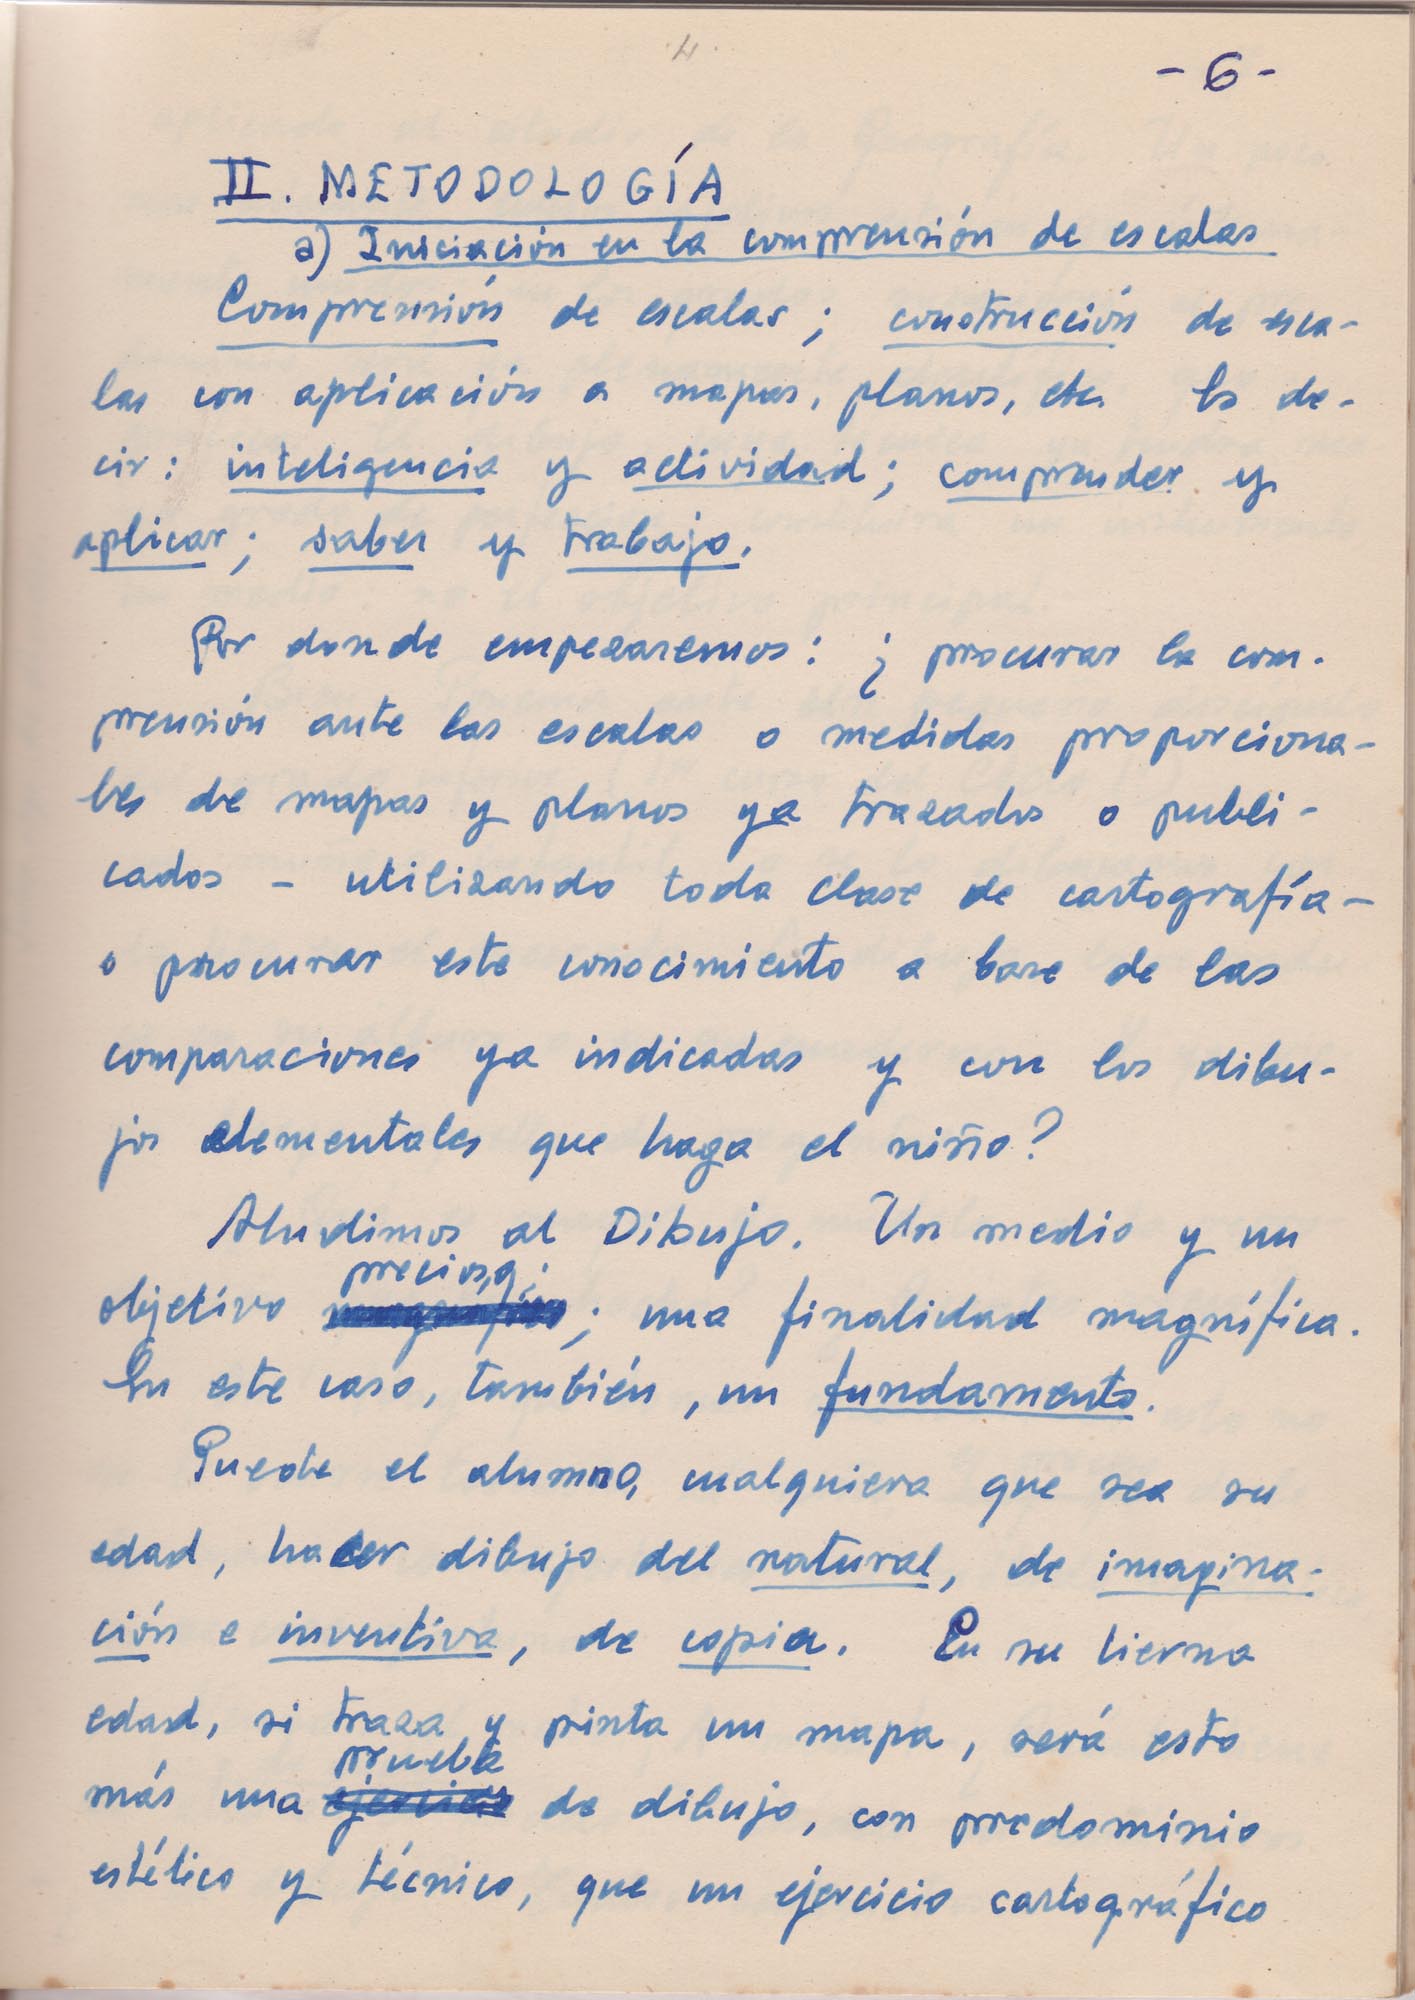 4
- 6 -
II. METODOLOGÍA
a) Iniciación en la comprensión de escalas
Comprensión de escalas; construcción de esca-
las con aplicación a mapas, planos, etc. Es de-
cir: inteligencia y actividad; comprender y
aplicar; saber y trabajo.
Por donde empezaremos: ¿ procurar la com-
prensión ante las escalas o medidas proporciona-
les de mapas y planos ya trazados o publi-
cados - utilizando toda clase de cartografía -
o procurar este conocimiento a base de las
comparaciones ya indicadas y con los dibu-
jos elementales que haga el niño?
Aludimos al Dibujo. Un medio y un
precioso;
objetivo ; una finalidad magnífica.
En este caso, también, un fundamento.
Puede el alumno, cualquiera que sea su
edad, hacer dibujo del natural, de imagina-
ción e inventiva, de copia. En su tierna
edad, si traza y pinta un mapa, será esto
prueba
más una ejercicio de dibujo, con predominio
estético y técnico, que un ejercicio cartográfico